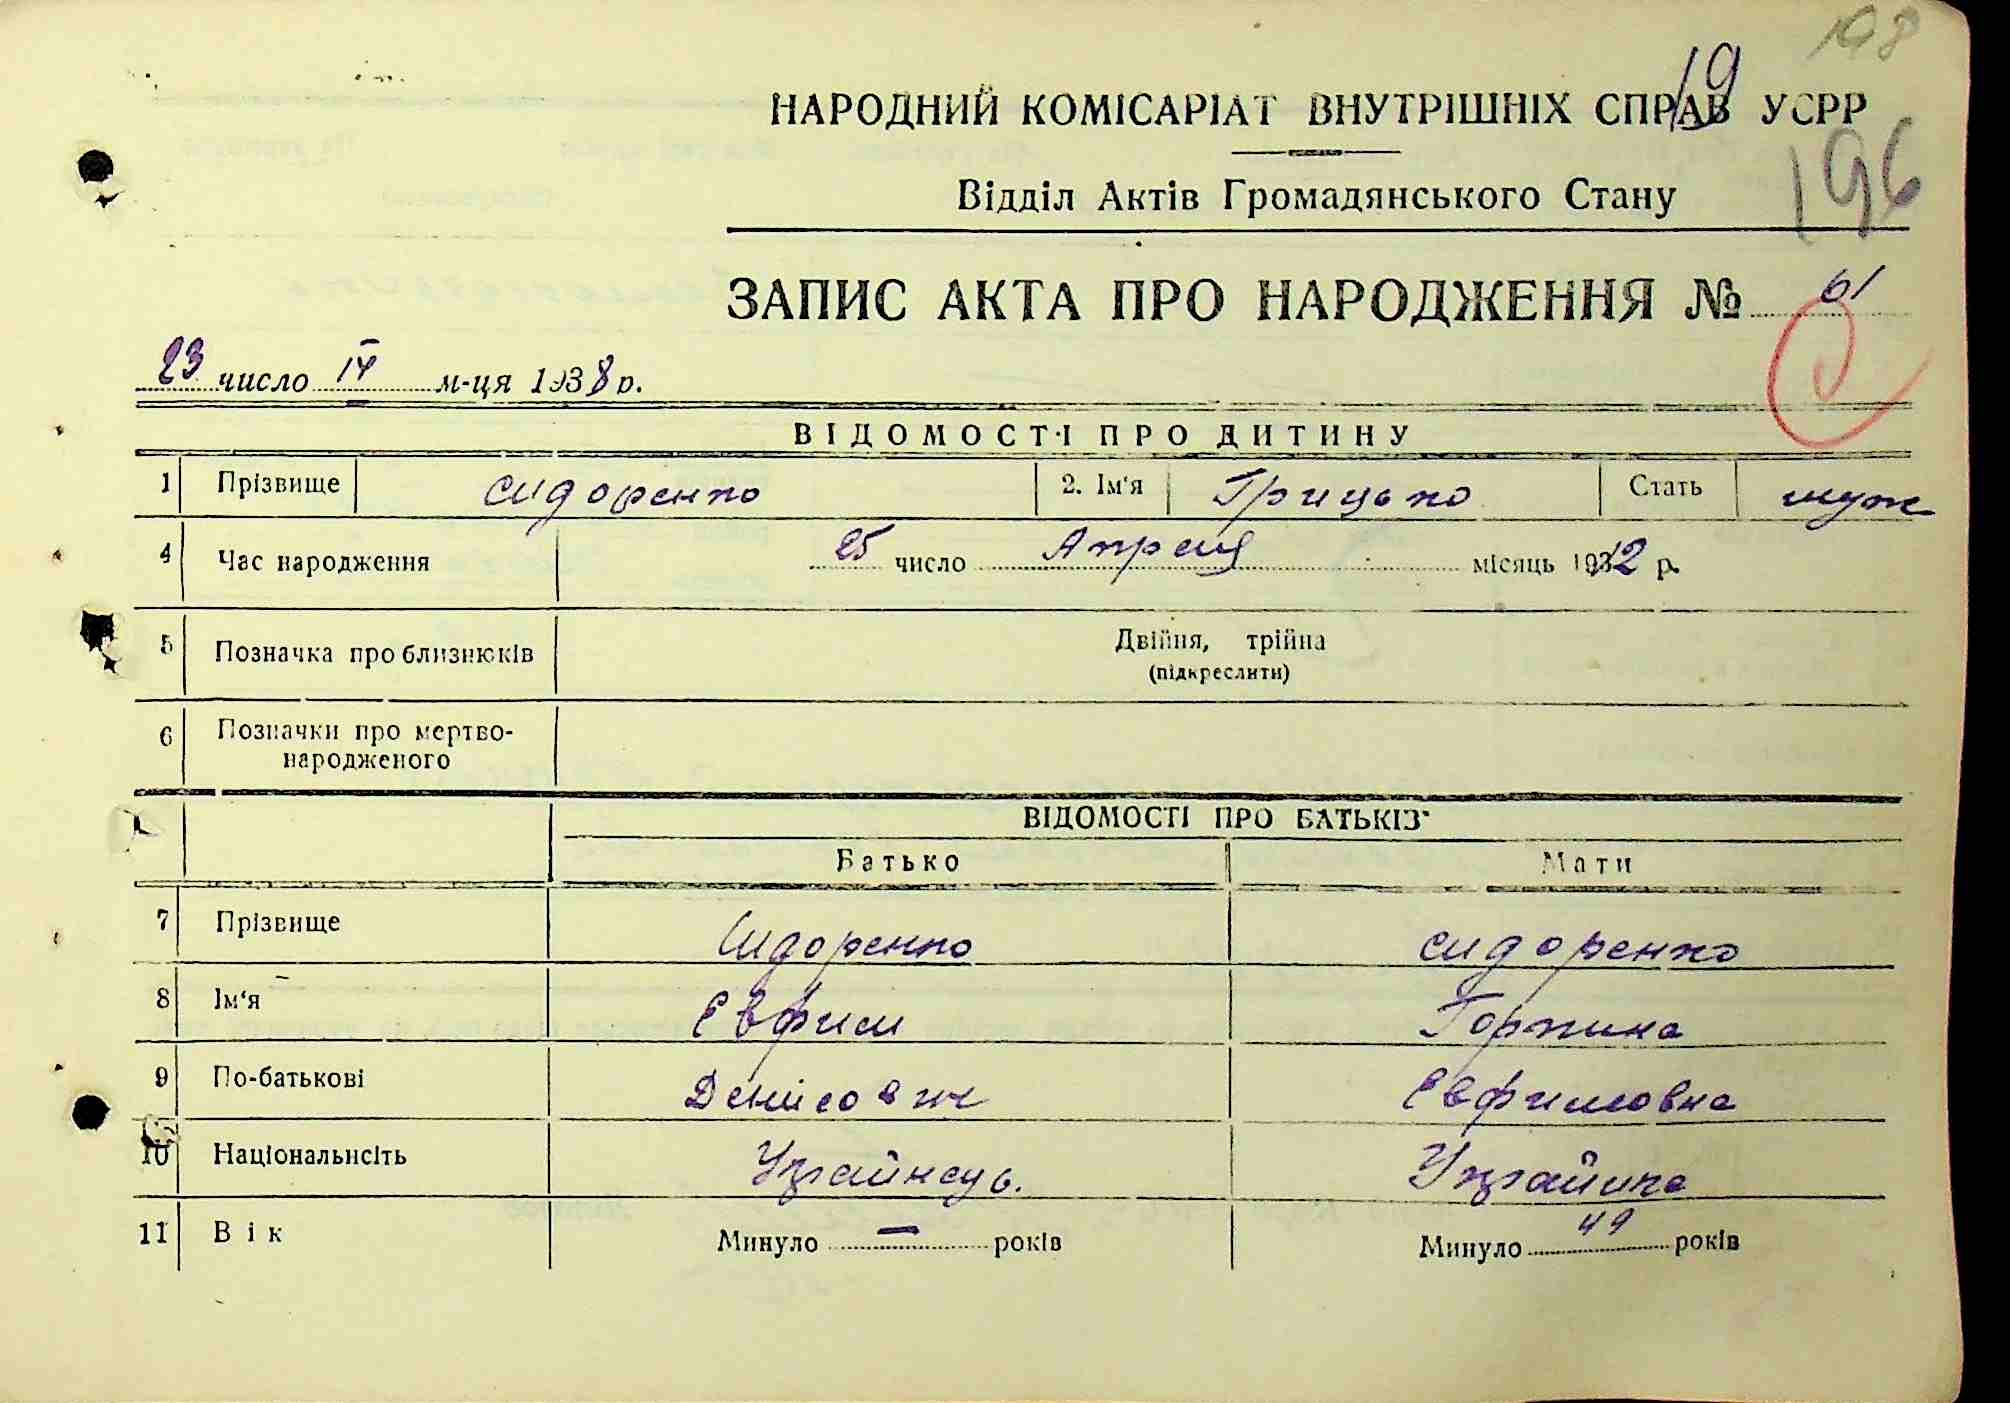 198
19
НАРОДНИЙ КОМІСАРІАТ ВНУТРІШНІХ СПРАВ УСРР
196
Відділ Актів Громадянського Стану
ЗАПИС АКТА ПРО НАРОДЖЕННЯ № 61
23 число IV м-ця 1938 р.
ВІДОМОСТІ ПРО ДИТИНУ
1 Прізвище сидоренко 2. Ім'я Грицько Стать муж
4 Час народження 25 число Апреля місяць 1912 р.
5 Позначка про близнюків Двійня, трійна
(підкреслити)
6 Позначки про мертво-
народженого
ВІДОМОСТІ ПРО БАТЬКІВ
Батько Мати
7 Прізвище Сидоренко сидоренко
8 Ім'я Євфим Горпина
9 По-батькові Денисович Євфимовна
10 Національнсіть Украйнець. Украйинка
11 Вік Минуло — років Минуло 49 років